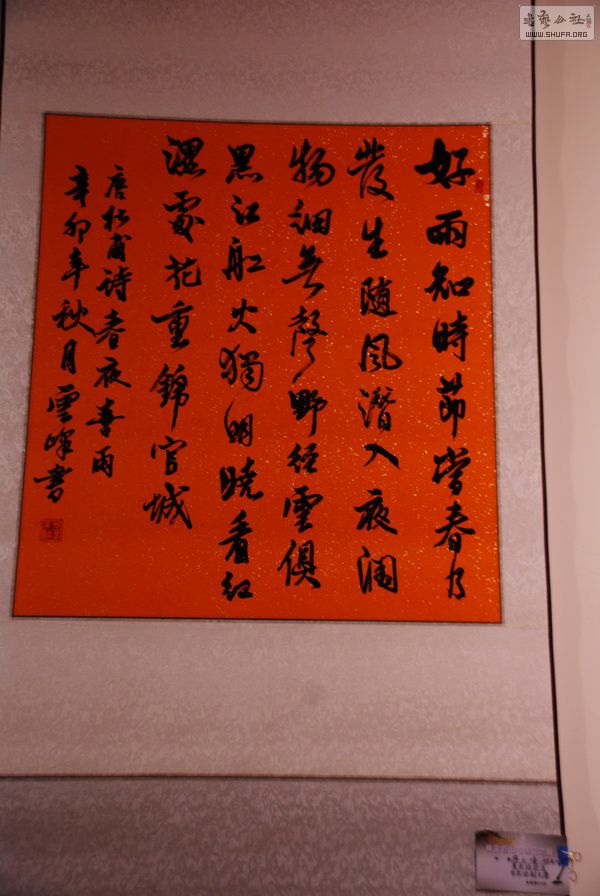 好雨知時節當春乃
發生随風潛入夜潤
物細無聲野徑雲俱
黑江船火獨明曉看紅
濕處花重錦官城
唐杜甫诗春夜喜雨
辛卯年秋月雲峰書
书艺公社
WWW.SHUFA.ORG